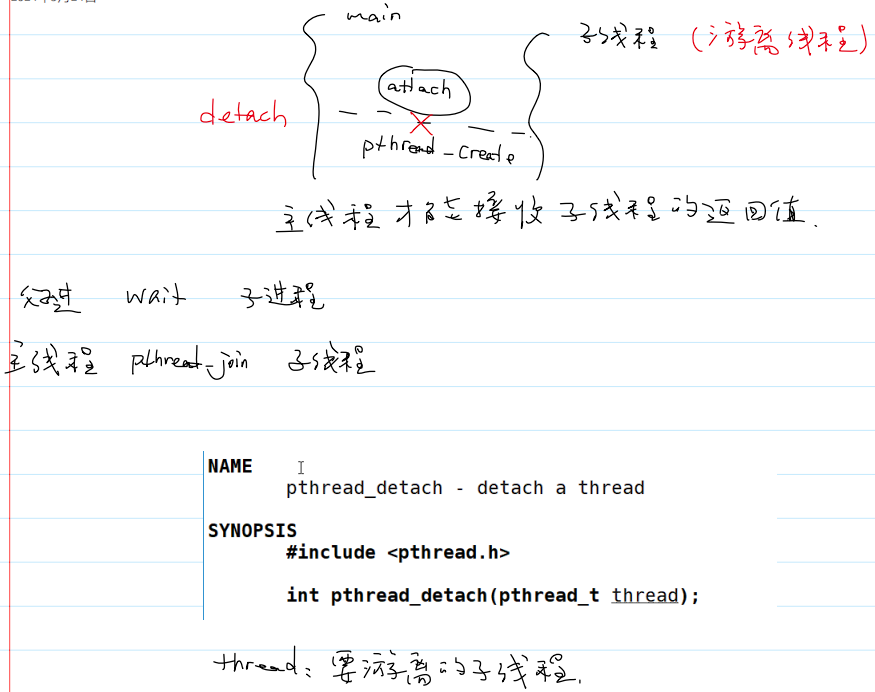 main
子线程 (游离线程)
attach
detach
pthread_create
主线程才能接收子线程的返回值.
父进程 wait 子进程
主线程 pthread_join 子线程
NAME
pthread_detach - detach a thread
SYNOPSIS
#include <pthread.h>
int pthread_detach(pthread_t thread);
thread: 要游离的子线程.